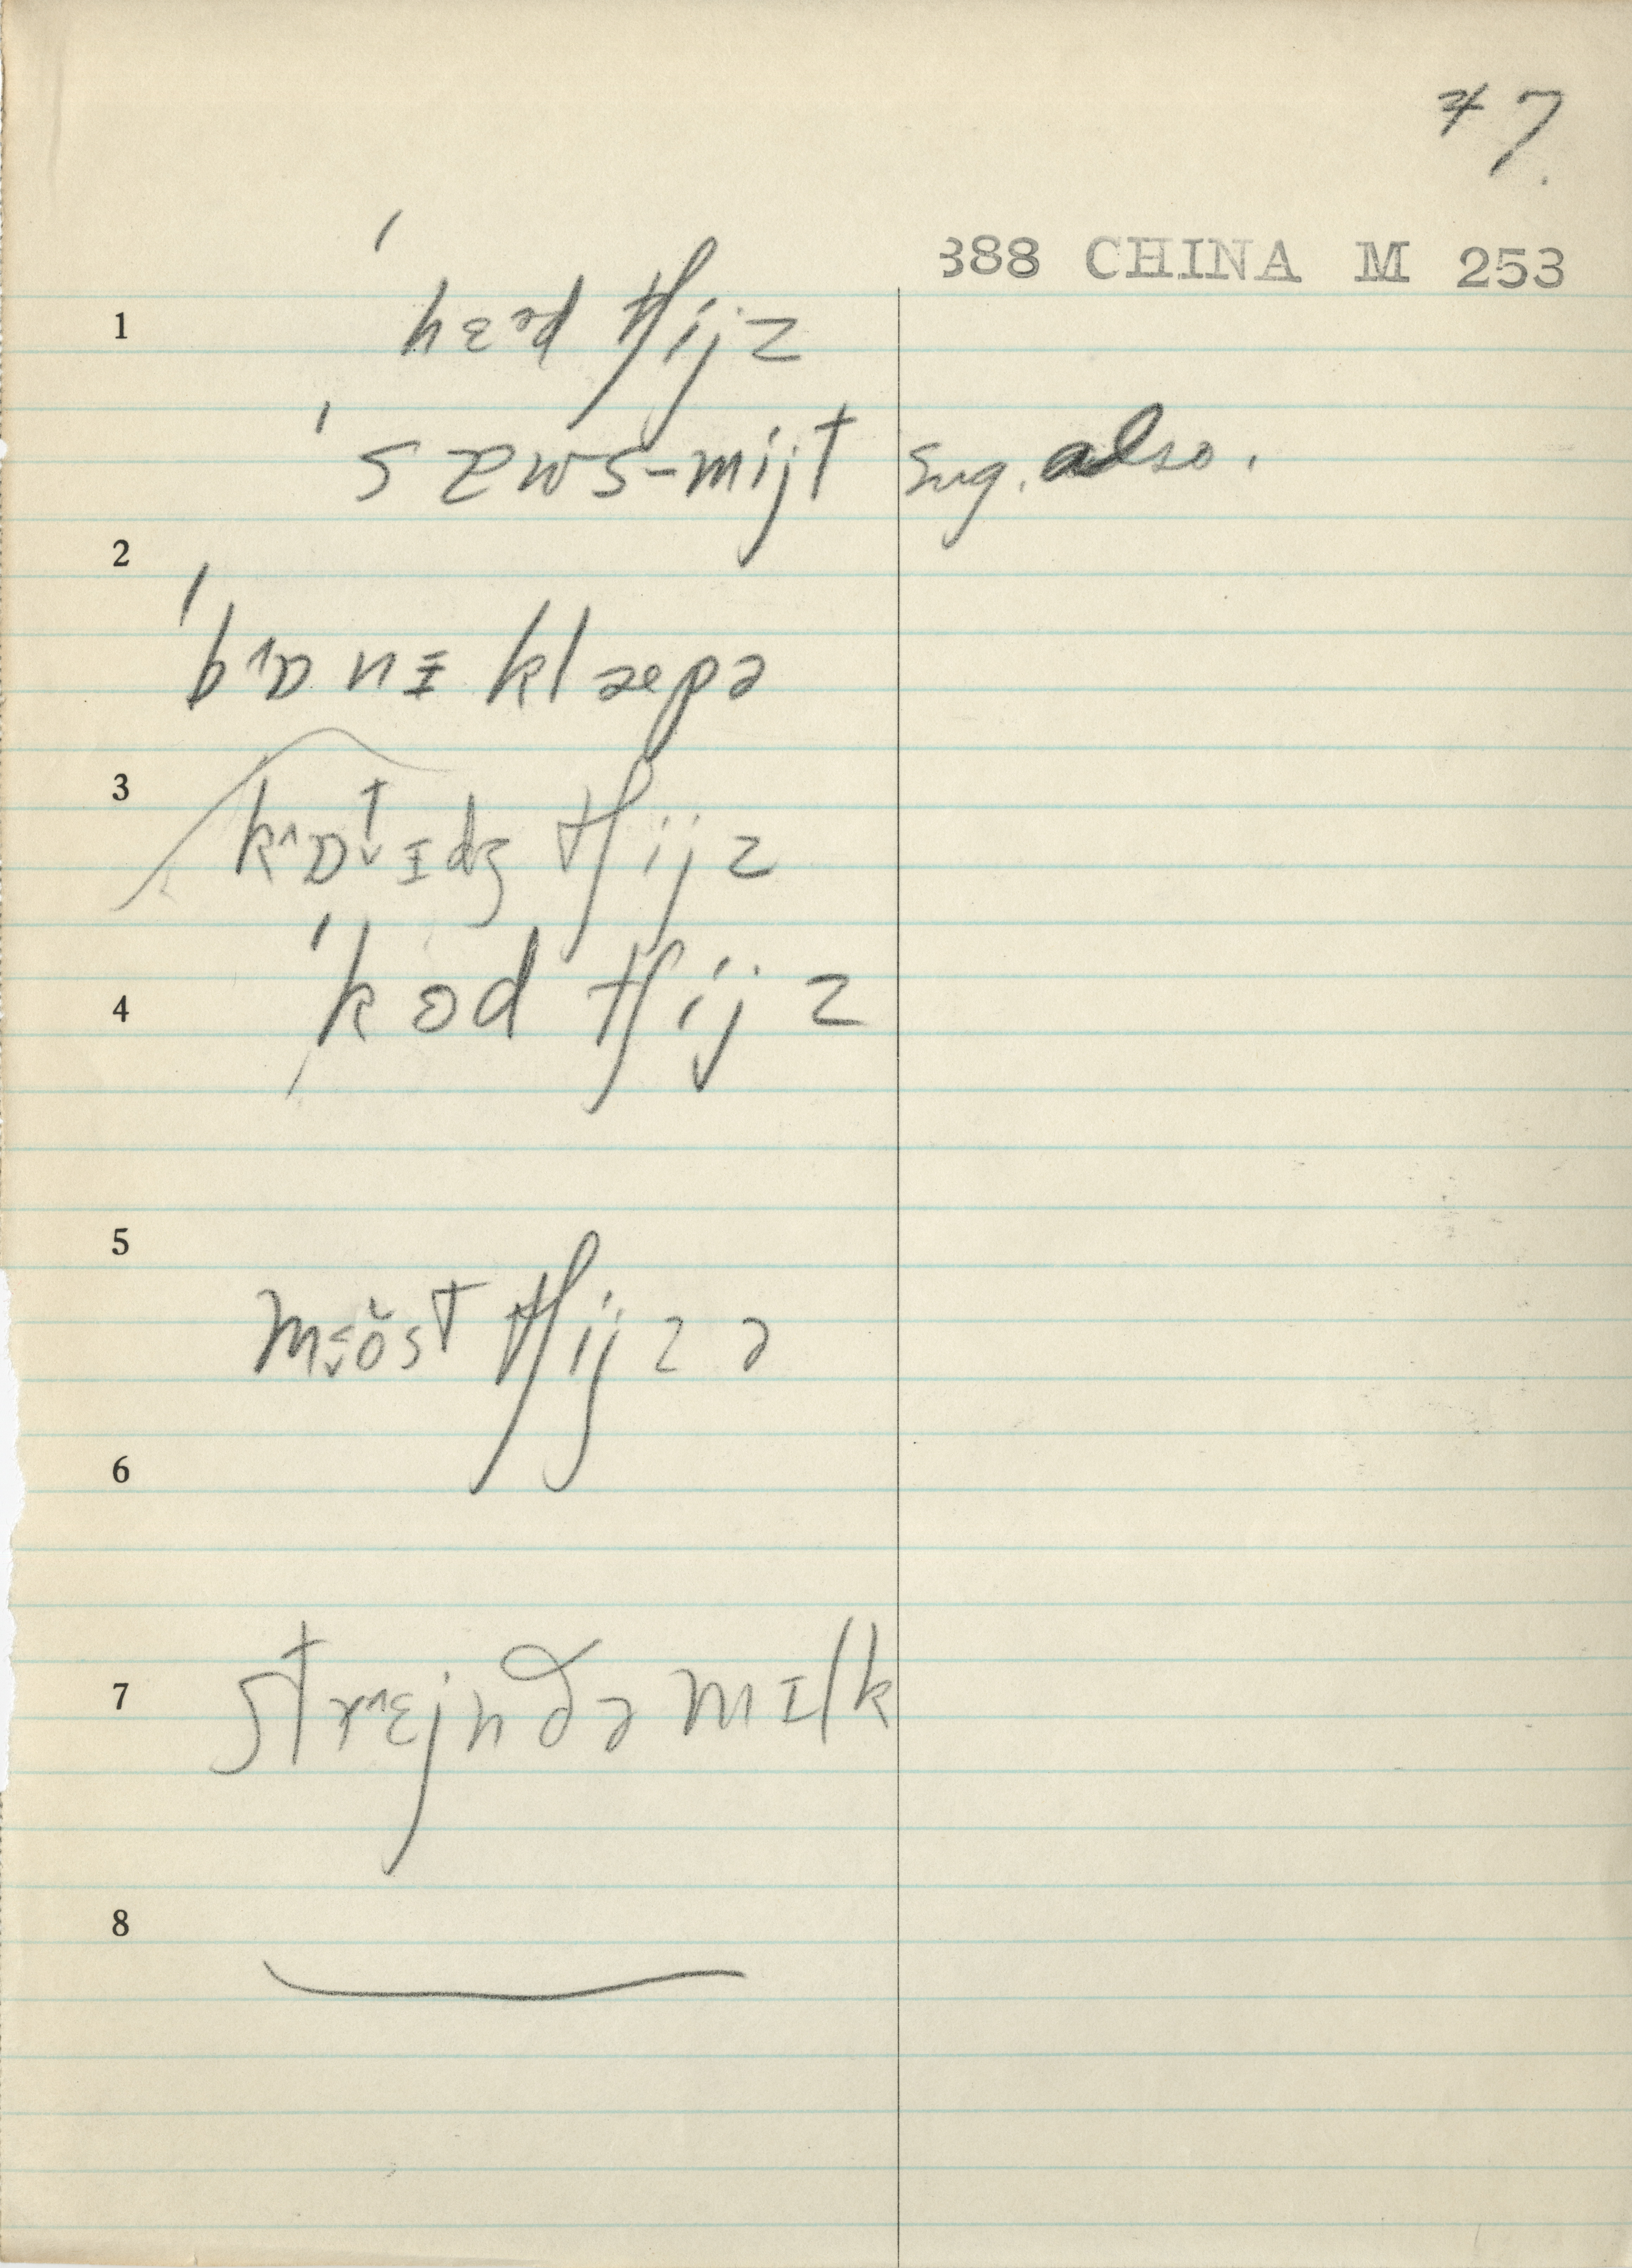 #7.
388 CHINA M 253
1 ˈhɛəd tʃijz
ˈsæws-mijt sug. also.
2
ˈbɒ˄nɪ klæpə
3
kɒ˄t̬ɪdʒ tʃijz
4 ˈkɵd tʃijz
5
mɵ̆st tʃijz ə
6
7 strɛ˄jn ðə mɪlk
8